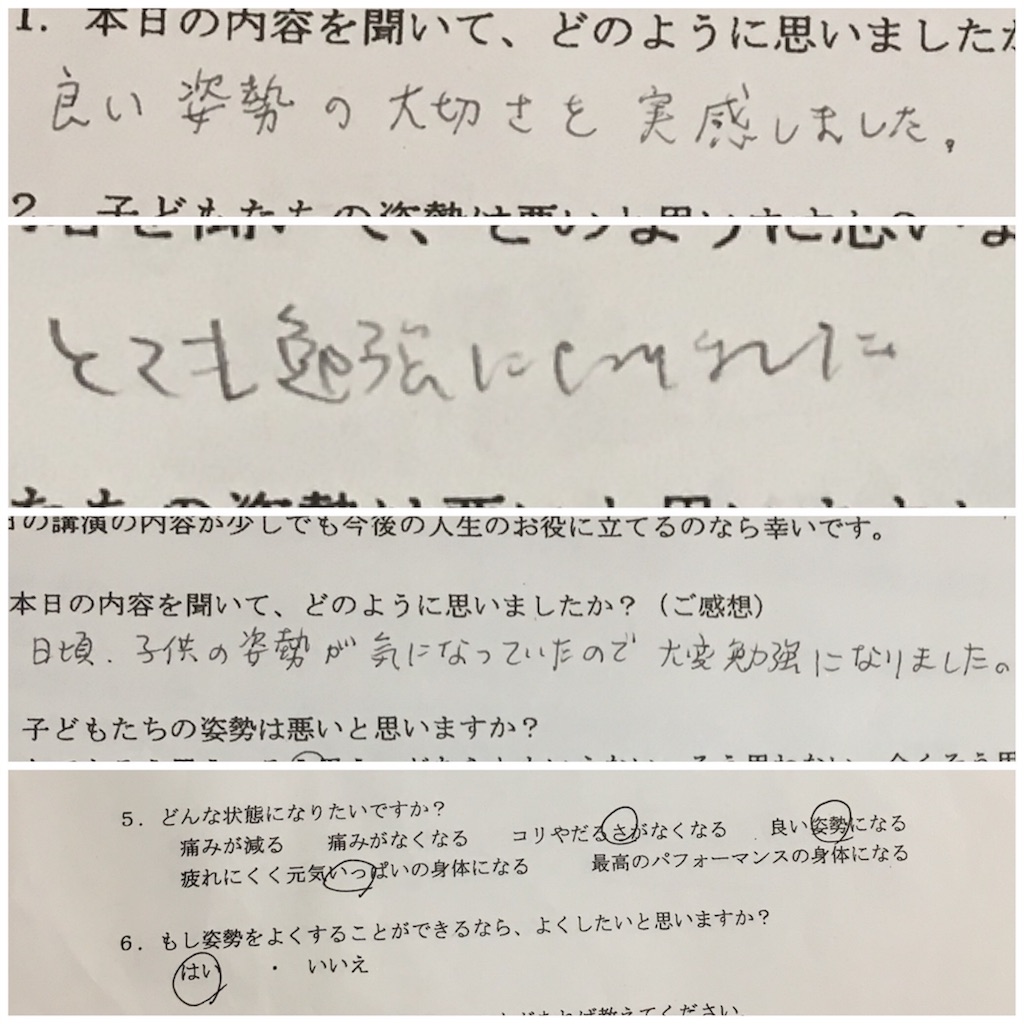 1. 本日の内容を聞いて、どのように思いました
良い姿勢の大切さを実感しました。
2. 子どもたちの姿勢は悪いと思いますか?
を聞いて、どのように思い
とても勉強になりました
たちの姿勢は悪いと思います
の講演の内容が少しでも今後の人生のお役に立てるのなら幸いです。
本日の内容を聞いて、どのように思いましたか?(ご感想)
日頃、子供の姿勢が気になっていたので大変勉強になりました。
子どもたちの姿勢は悪いと思いますか?
5. どんな状態になりたいですか?
痛みが減る 痛みがなくなる コリやだるさがなくなる 良い姿勢になる
疲れにくく元気いっぱいの身体になる 最高のパフォーマンスの身体になる
6. もし姿勢をよくすることができるなら、よくしたいと思いますか?
はい ・ いいえ
教えてください